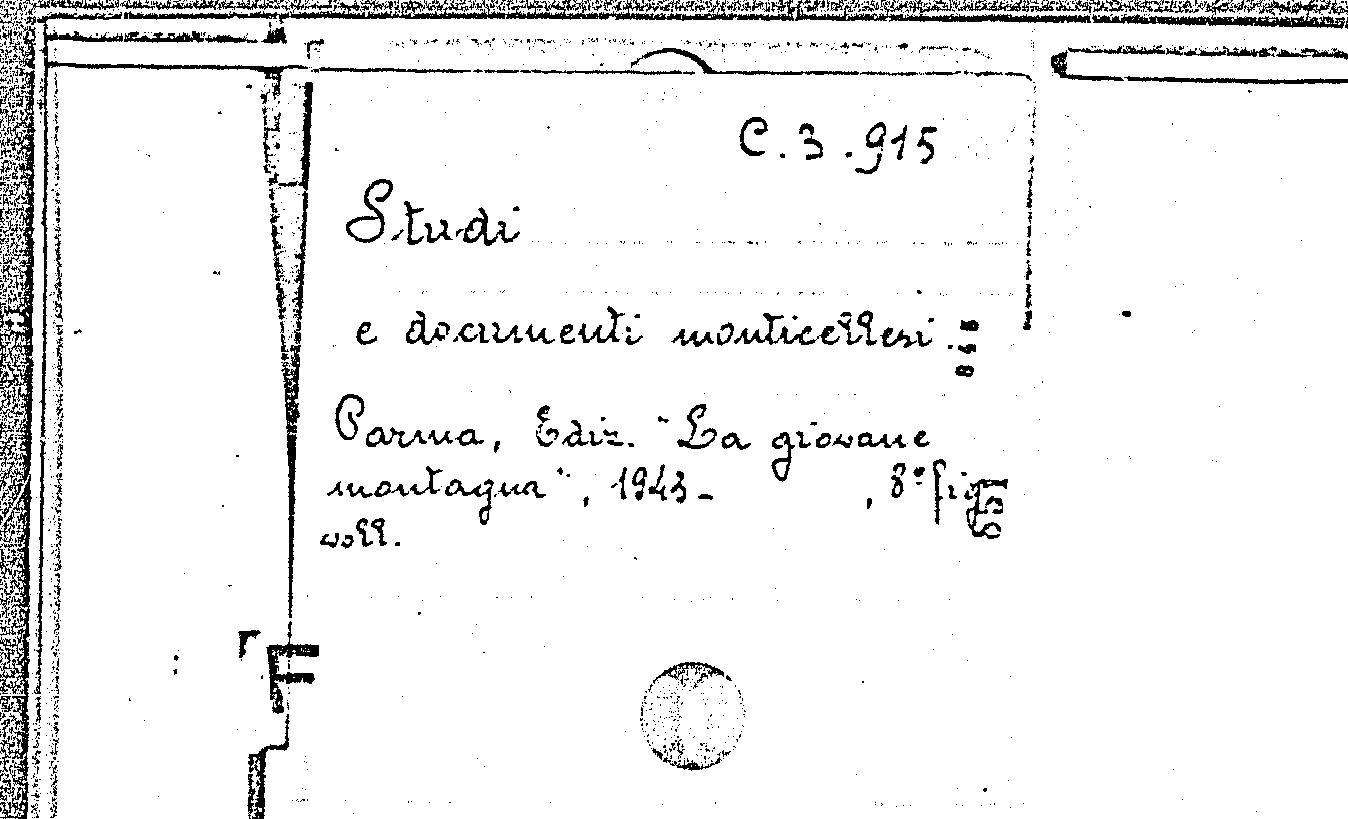 C.3.915
Studi
e documenti monticellesi.
Parma, Ediz. "La giovane
montagna", 1943- , 8° fig
voll.